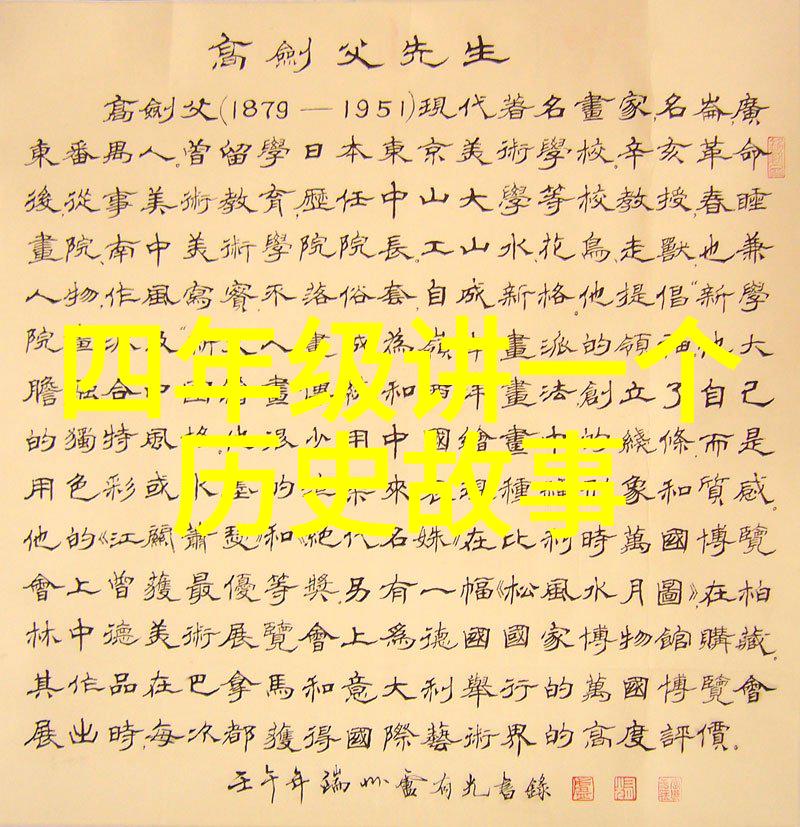 高劍父先生
高劍父(1879—1951)現代著名畫家,名崙,廣
東番禺人。曾留學日本東京美術學校。辛亥革命
後,從事美術教育,歷任中山大學等校教授,春睡
畫院、南中美術學院院長。工山水、花鳥、走獸,也兼
人物,作風寫實,不落俗套,自成新格。他提倡“新學
院
畫派的領
大
膽融合
畫
和
畫法,創立了自己
的獨特風格。他
用中國繪畫中的綫條,而是
用色彩或水墨的
來
種
象和質感。
他的《江關蕭瑟》和《絕代名姝》在比利時萬國博覽
會上曾獲最優等獎。另有一幅《松風水月圖》,在柏
林中德美術展覽會上爲德國國家博物館購藏。
其作品在巴拿馬和意大利舉行的萬國博覽會
展出時,每次都獲得國際藝術界的高度評價。
壬午年端州盧有光書錄
四年级讲一个
历史故事